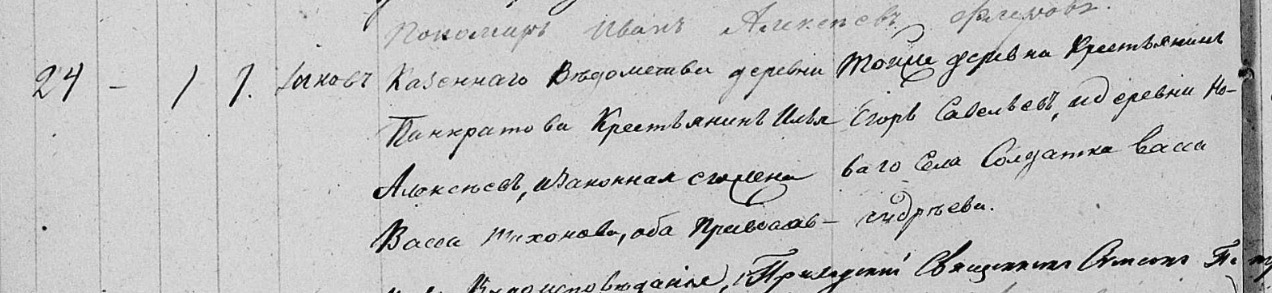 Пономарь Иванъ Алексѣевъ
24 - 1 1. Іаковъ Казеннаго Вѣдомства деревни Тойже деревни Крестьянинъ
Панкратова Крестьянинъ Илья Егоръ Савельевъ, и деревни Но-
Алексѣевъ, и законная его жена ваго Села Солдатка Васса
Васса Тихонова, оба Православ- Андрѣева.
Приходскій Священникъ Симеонъ